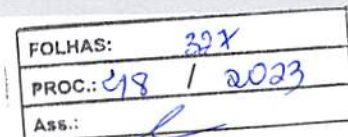 FOLHAS: 327
PROC.: 48 / 2023
Ass.: